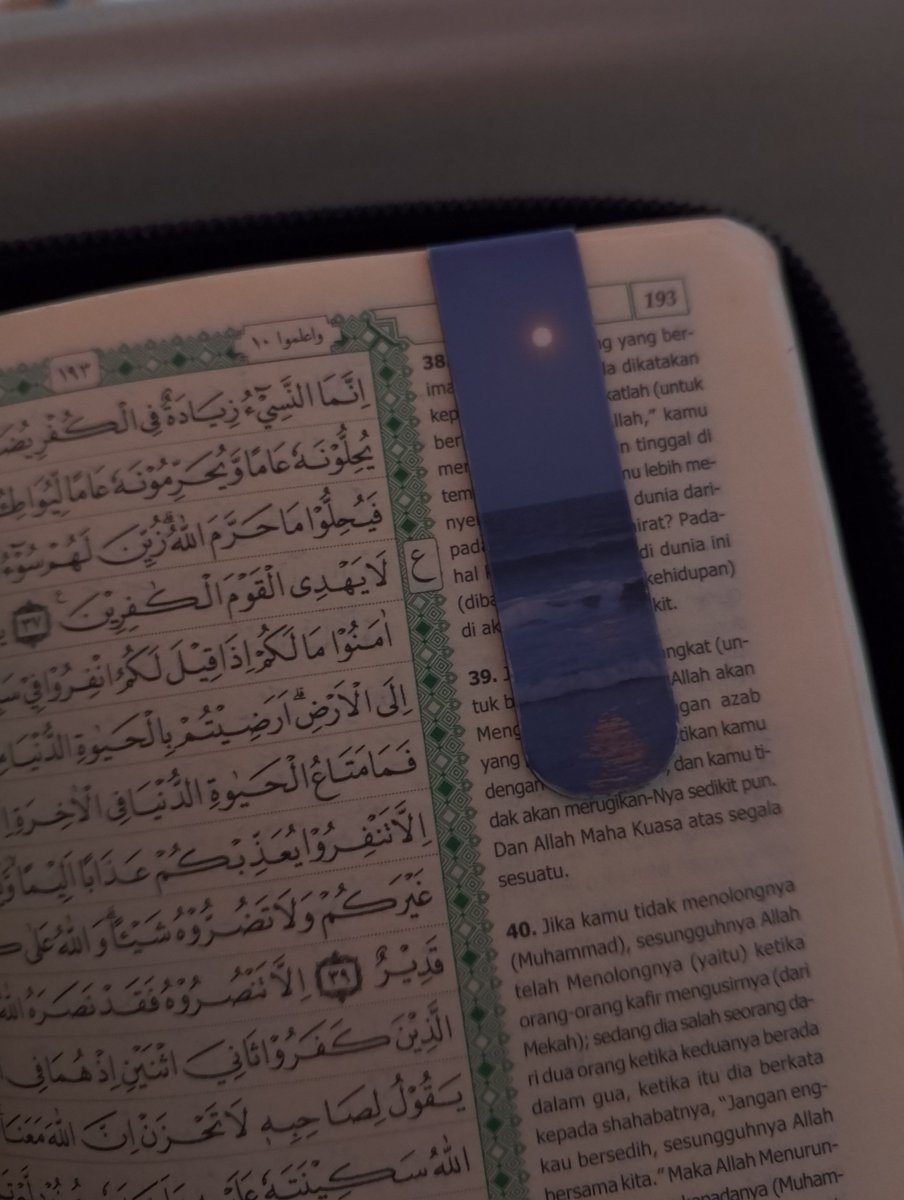 ١٩٣
واعلموا ١٠
193
اِنَّمَا النَّسِيْۤءُ زِيَادَةٌ فِى الْكُفْرِ
يُحِلُّوْنَهٗ عَامًا وَّيُحَرِّمُوْنَهٗ عَامًا
فَيُحِلُّوْا مَا حَرَّمَ اللّٰهُ ۗزُيِّنَ لَهُمْ سُوْۤءُ
لَا يَهْدِى الْقَوْمَ الْكٰفِرِيْنَ ࣖ ٣٧
ع
اٰمَنُوْا مَا لَكُمْ اِذَا قِيْلَ لَكُمُ انْفِرُوْا فِيْ
اِلَى الْاَرْضِۗ اَرَضِيْتُمْ بِالْحَيٰوةِ الدُّنْيَا
فَمَا مَتَاعُ الْحَيٰوةِ الدُّنْيَا فِى الْاٰخِرَةِ
اِلَّا تَنْفِرُوْا يُعَذِّبْكُمْ عَذَابًا اَلِيْمًا
غَيْرَكُمْ وَلَا تَضُرُّوْهُ شَيْـًٔاۗ وَاللّٰهُ عَلٰى
قَدِيْرٌ ٣٩ اِلَّا تَنْصُرُوْهُ فَقَدْ نَصَرَهُ اللّٰهُ
الَّذِيْنَ كَفَرُوْا ثَانِيَ اثْنَيْنِ اِذْ هُمَا فِى
يَقُوْلُ لِصَاحِبِهٖ لَا تَحْزَنْ اِنَّ اللّٰهَ مَعَنَا
اللّٰهُ سَكِيْنَتَهٗ
38. yang ber-
dikatakan
(untuk
kamu
tinggal di
lebih me-
dunia dari-
Pada-
hal di dunia ini
kehidupan)
di
39. (un-
tuk Allah akan
azab
yang kamu
dengan , dan kamu ti-
dak akan merugikan-Nya sedikit pun.
Dan Allah Maha Kuasa atas segala
sesuatu.
40. Jika kamu tidak menolongnya
(Muhammad), sesungguhnya Allah
telah Menolongnya (yaitu) ketika
orang-orang kafir mengusirnya (dari
Mekah); sedang dia salah seorang da-
ri dua orang ketika keduanya berada
dalam gua, ketika itu dia berkata
kepada shahabatnya, "Jangan eng-
kau bersedih, sesungguhnya Allah
bersama kita." Maka Allah Menurun-
(Muham-